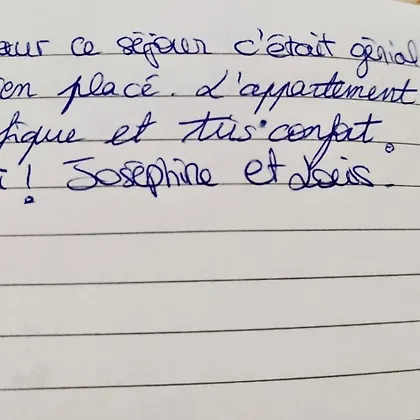 our ce séjour c'était génial
en placé. L'appartement
fique et très confat.
i! Joséphine et Louis.